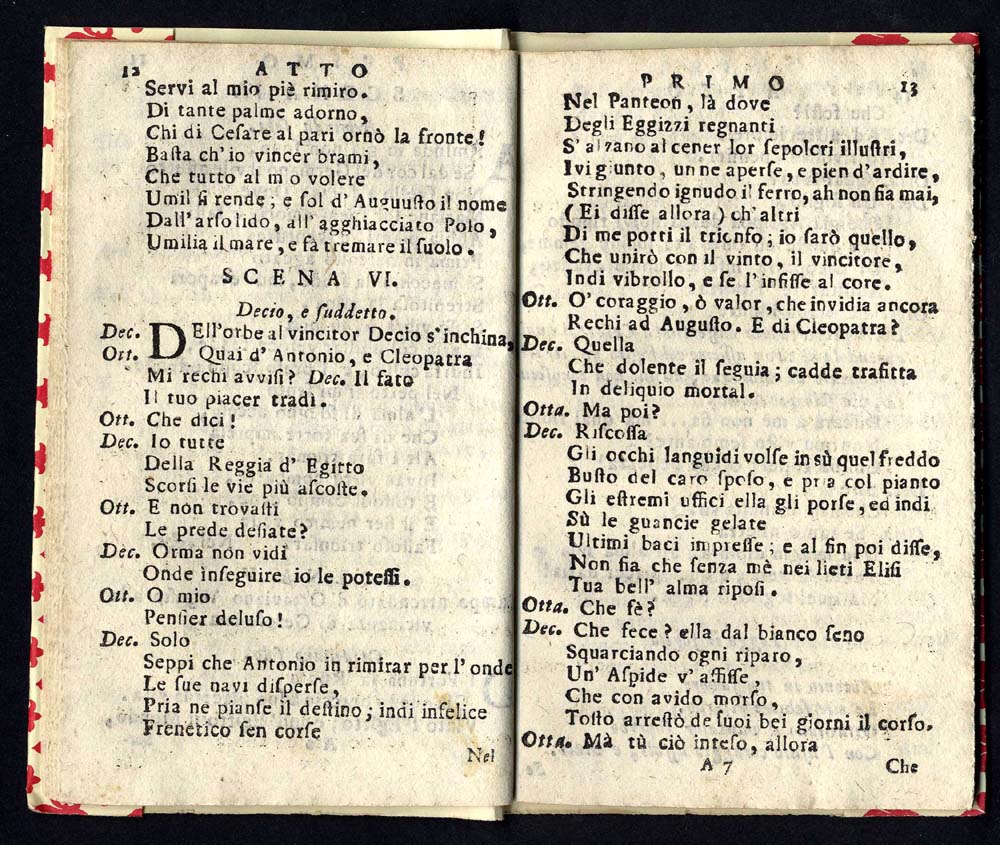 12 ATTO
Servi al mio piè rimiro.
Di tante palme adorno,
Chi di Ceſare al pari ornò la fronte!
Baſta ch'io vincer brami,
Che tutto al m o volere
Umil ſi rende; e ſol d' Auguuſto il nome
Dall'arſo lido, all' agghiacciato Polo,
Umilia il mare, e fà tremare il ſuolo.
SCENA VI.
Decio, e ſuddetto.
Dec. DEll'orbe al vincitor Decio s'inchina,
Ott. Quai d' Antonio, e Cleopatra
Mi rechi avviſi? Dec. Il fato
Il tuo piacer tradì.
Ott. Che dici!
Dec. Io tutte
Della Reggia d' Egitto
Scorſi le vie più aſcoſte.
Ott. E non trovaſti
Le prede deſiate?
Dec. Orma non vidi
Onde inſeguire io le poteſſi.
Ott. O mio
Penſier deluſo!
Dec. Solo
Seppi che Antonio in rimirar per l' onde
Le ſue navi diſperſe,
Pria ne pianſe il deſtino; indi infelice
Frenetico ſen corſe
Nel
PRIMO 13
Nel Panteon, là dove
Degli Eggizzi regnanti
S' alzano al cener lor ſepolcri illuſtri,
Ivi giunto, un ne aperſe, e pien d'ardire,
Stringendo ignudo il ferro, ah non ſia mai,
( Ei diſſe allora ) ch' altri
Di me porti il trionfo; io ſarò quello,
Che unirò con il vinto, il vincitore,
Indi vibrollo, e ſe l'infiſſe al core.
Ott. O' coraggio, ò valor, che invidia ancora
Rechi ad Auguſto. E di Cleopatra?
Dec. Quella
Che dolente il ſeguia; cadde trafitta
In deliquio mortal.
Otta. Ma poi?
Dec. Riſcoſſa
Gli occhi languidi volſe in sù quel freddo
Buſto del caro ſpoſo, e pria col pianto
Gli eſtremi uffici ella gli porſe, ed indi
Sù le guancie gelate
Ultimi baci impreſſe; e al fin poi diſſe,
Non fia che ſenza mè nei lieti Eliſi
Tua bell' alma ripoſi.
Otta. Che fè?
Dec. Che fece? ella dal bianco ſeno
Squarciando ogni riparo,
Un' Aſpide v' affiſſe,
Che con avido morſo,
Toſto arreſtò de ſuoi bei giorni il corſo.
Otta. Mà tù ciò inteſo, allora
A 7 Che